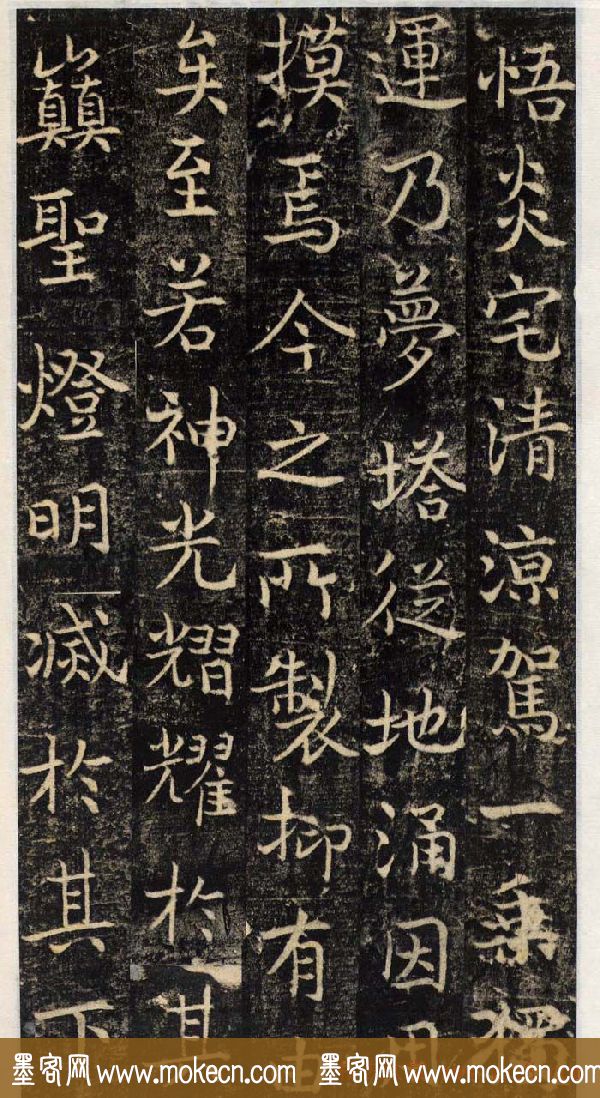 悟炎宅清涼駕一乗獨
運乃夢塔従地涌因用
摸焉今之所製抑有由
矣至若神光熠耀於其
巔聖燈明滅於其下
墨客网 www.mokecn.com 墨客网 www.mokecn.com